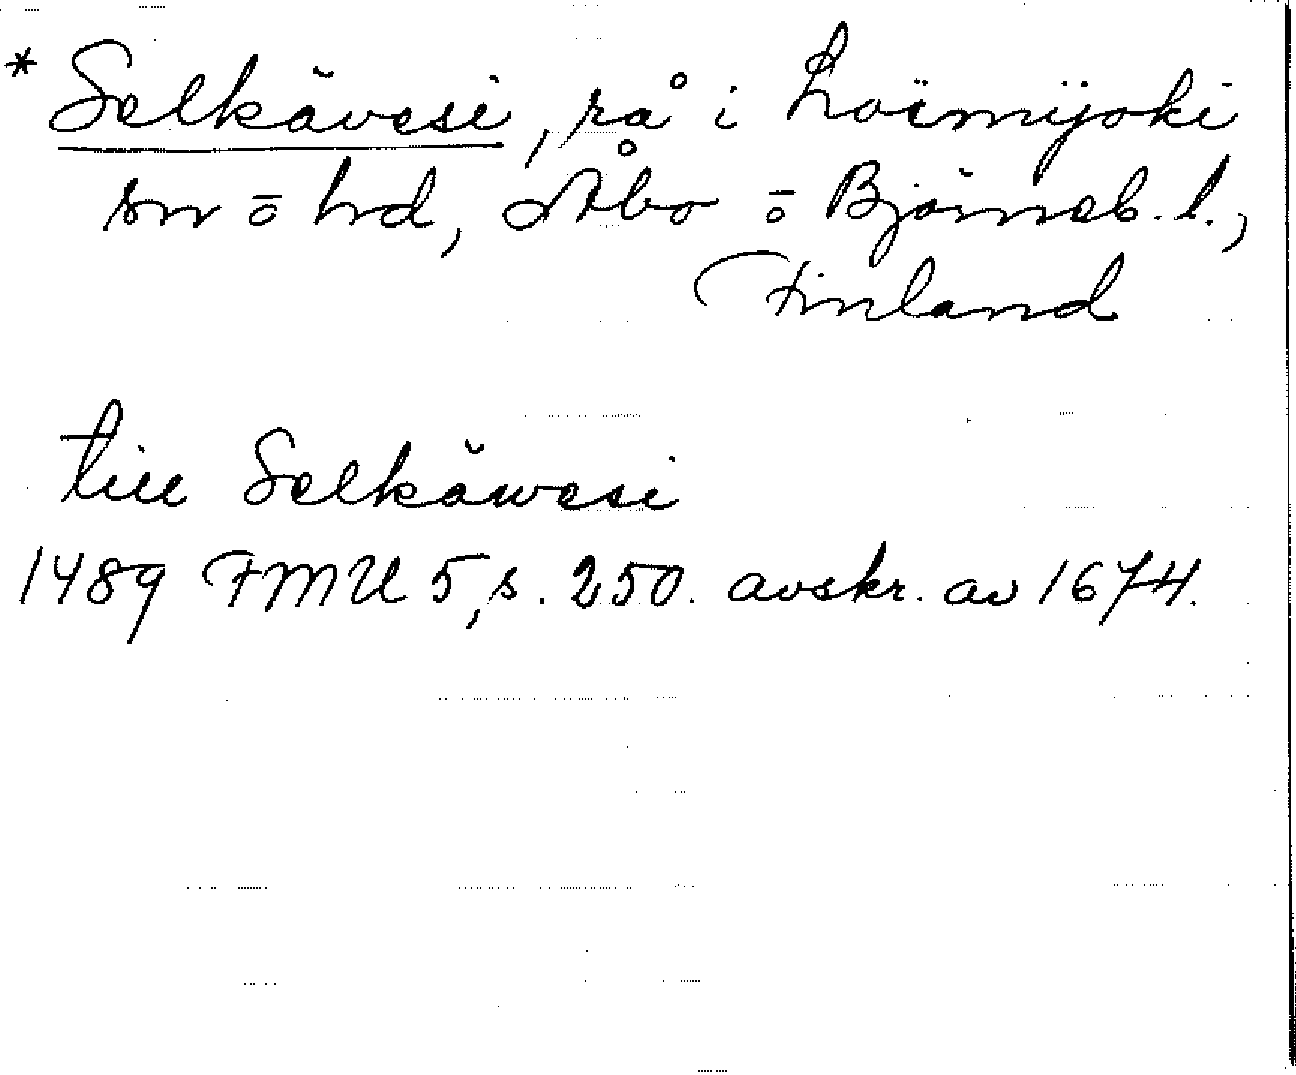 * Selkävesi, rå i Loimijoki
sn o hd, Åbo o Björneb. l.,
Finland
till Selkäwesi
1489 FMU 5, s. 250. avskr. av 1674.